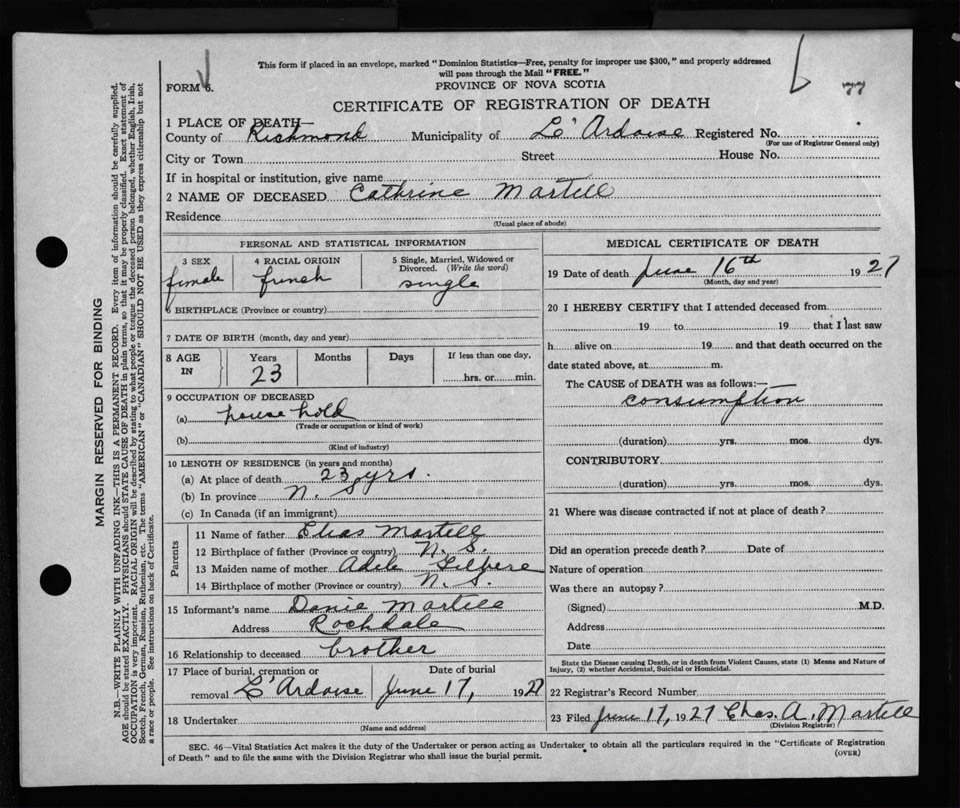 This form if placed in an envelope, marked "Dominion Statistics—Free, penalty for improper use $300," and properly addressed
will pass through the Mail "FREE."
FORM 6.
PROVINCE OF NOVA SCOTIA
77
CERTIFICATE OF REGISTRATION OF DEATH
1 PLACE OF DEATH—
County of Richmond Municipality of L'Ardoise Registered No.
(For use of Registrar General only)
City or Town Street House No.
If in hospital or institution, give name
2 NAME OF DECEASED Cathrine Martell
Residence
(Usual place of abode)
PERSONAL AND STATISTICAL INFORMATION
3 SEX 4 RACIAL ORIGIN 5 Single, Married, Widowed or
Divorced. (Write the word)
female french single
6 BIRTHPLACE (Province or country)
7 DATE OF BIRTH (month, day and year)
8 AGE IN Years Months Days If less than one day,
23 hrs. or min.
9 OCCUPATION OF DECEASED
(a) house hold
(Trade or occupation or kind of work)
(b)
(Kind of industry)
10 LENGTH OF RESIDENCE (in years and months)
(a) At place of death 23 yrs.
(b) In province N. S
(c) In Canada (if an immigrant)
Parents
11 Name of father Elias Martell
12 Birthplace of father (Province or country) N. S.
13 Maiden name of mother Adele
14 Birthplace of mother (Province or country) N. S.
15 Informant's name Danie Martell
Address Rockdale
16 Relationship to deceased brother
17 Place of burial, cremation or Date of burial
removal L'Ardoise June 17, 1927
18 Undertaker
(Name and address)
MEDICAL CERTIFICATE OF DEATH
19 Date of death June 16th 1927
(Month, day and year)
20 I HEREBY CERTIFY that I attended deceased from
19 to 19 that I last saw
h alive on 19 and that death occurred on the
date stated above, at m.
The CAUSE of DEATH was as follows:—
consumption
(duration) yrs. mos. dys.
CONTRIBUTORY
(duration) yrs. mos. dys.
21 Where was disease contracted if not at place of death?
Did an operation precede death? Date of
Nature of operation
Was there an autopsy?
(Signed) M.D.
Address
Date
State the Disease causing Death, or in death from Violent Causes, state (1) Means and Nature of
Injury, (2) whether Accidental, Suicidal or Homicidal.
22 Registrar's Record Number
23 Filed June 17, 1927 Chas. A. Martell
(Division Registrar)
SEC. 46—Vital Statistics Act makes it the duty of the Undertaker or person acting as Undertaker to obtain all the particulars required in the "Certificate of Registration
of Death" and to file the same with the Division Registrar who shall issue the burial permit.
(OVER)
MARGIN RESERVED FOR BINDING
N.B.—WRITE PLAINLY WITH UNFADING INK—THIS IS A PERMANENT RECORD. Every item of information should be carefully supplied.
AGE should be stated EXACTLY. PHYSICIANS should STATE CAUSE OF DEATH in plain terms, so that it may be properly classified. Exact statement of
OCCUPATION is very important. RACIAL ORIGIN will be described by stating to what people or tongue the deceased person belonged, whether English, Irish,
Scotch, French, German, Russian, Ruthenian, etc. The terms "AMERICAN" or "CANADIAN" SHOULD NOT BE USED as they express citizenship but not
a race or people. See instructions on back of Certificate.